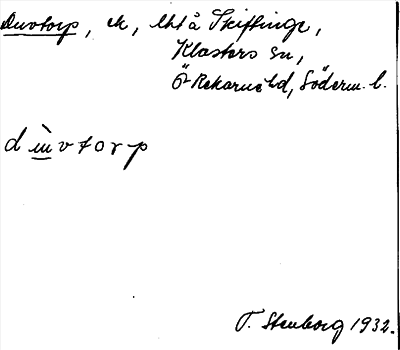 Duvtorp, ek, lht å Skiftinge,
Klosters sn,
Ö Rekarne hd, Söderm. l.
d ù v t o r p
T. Stenborg 1932.